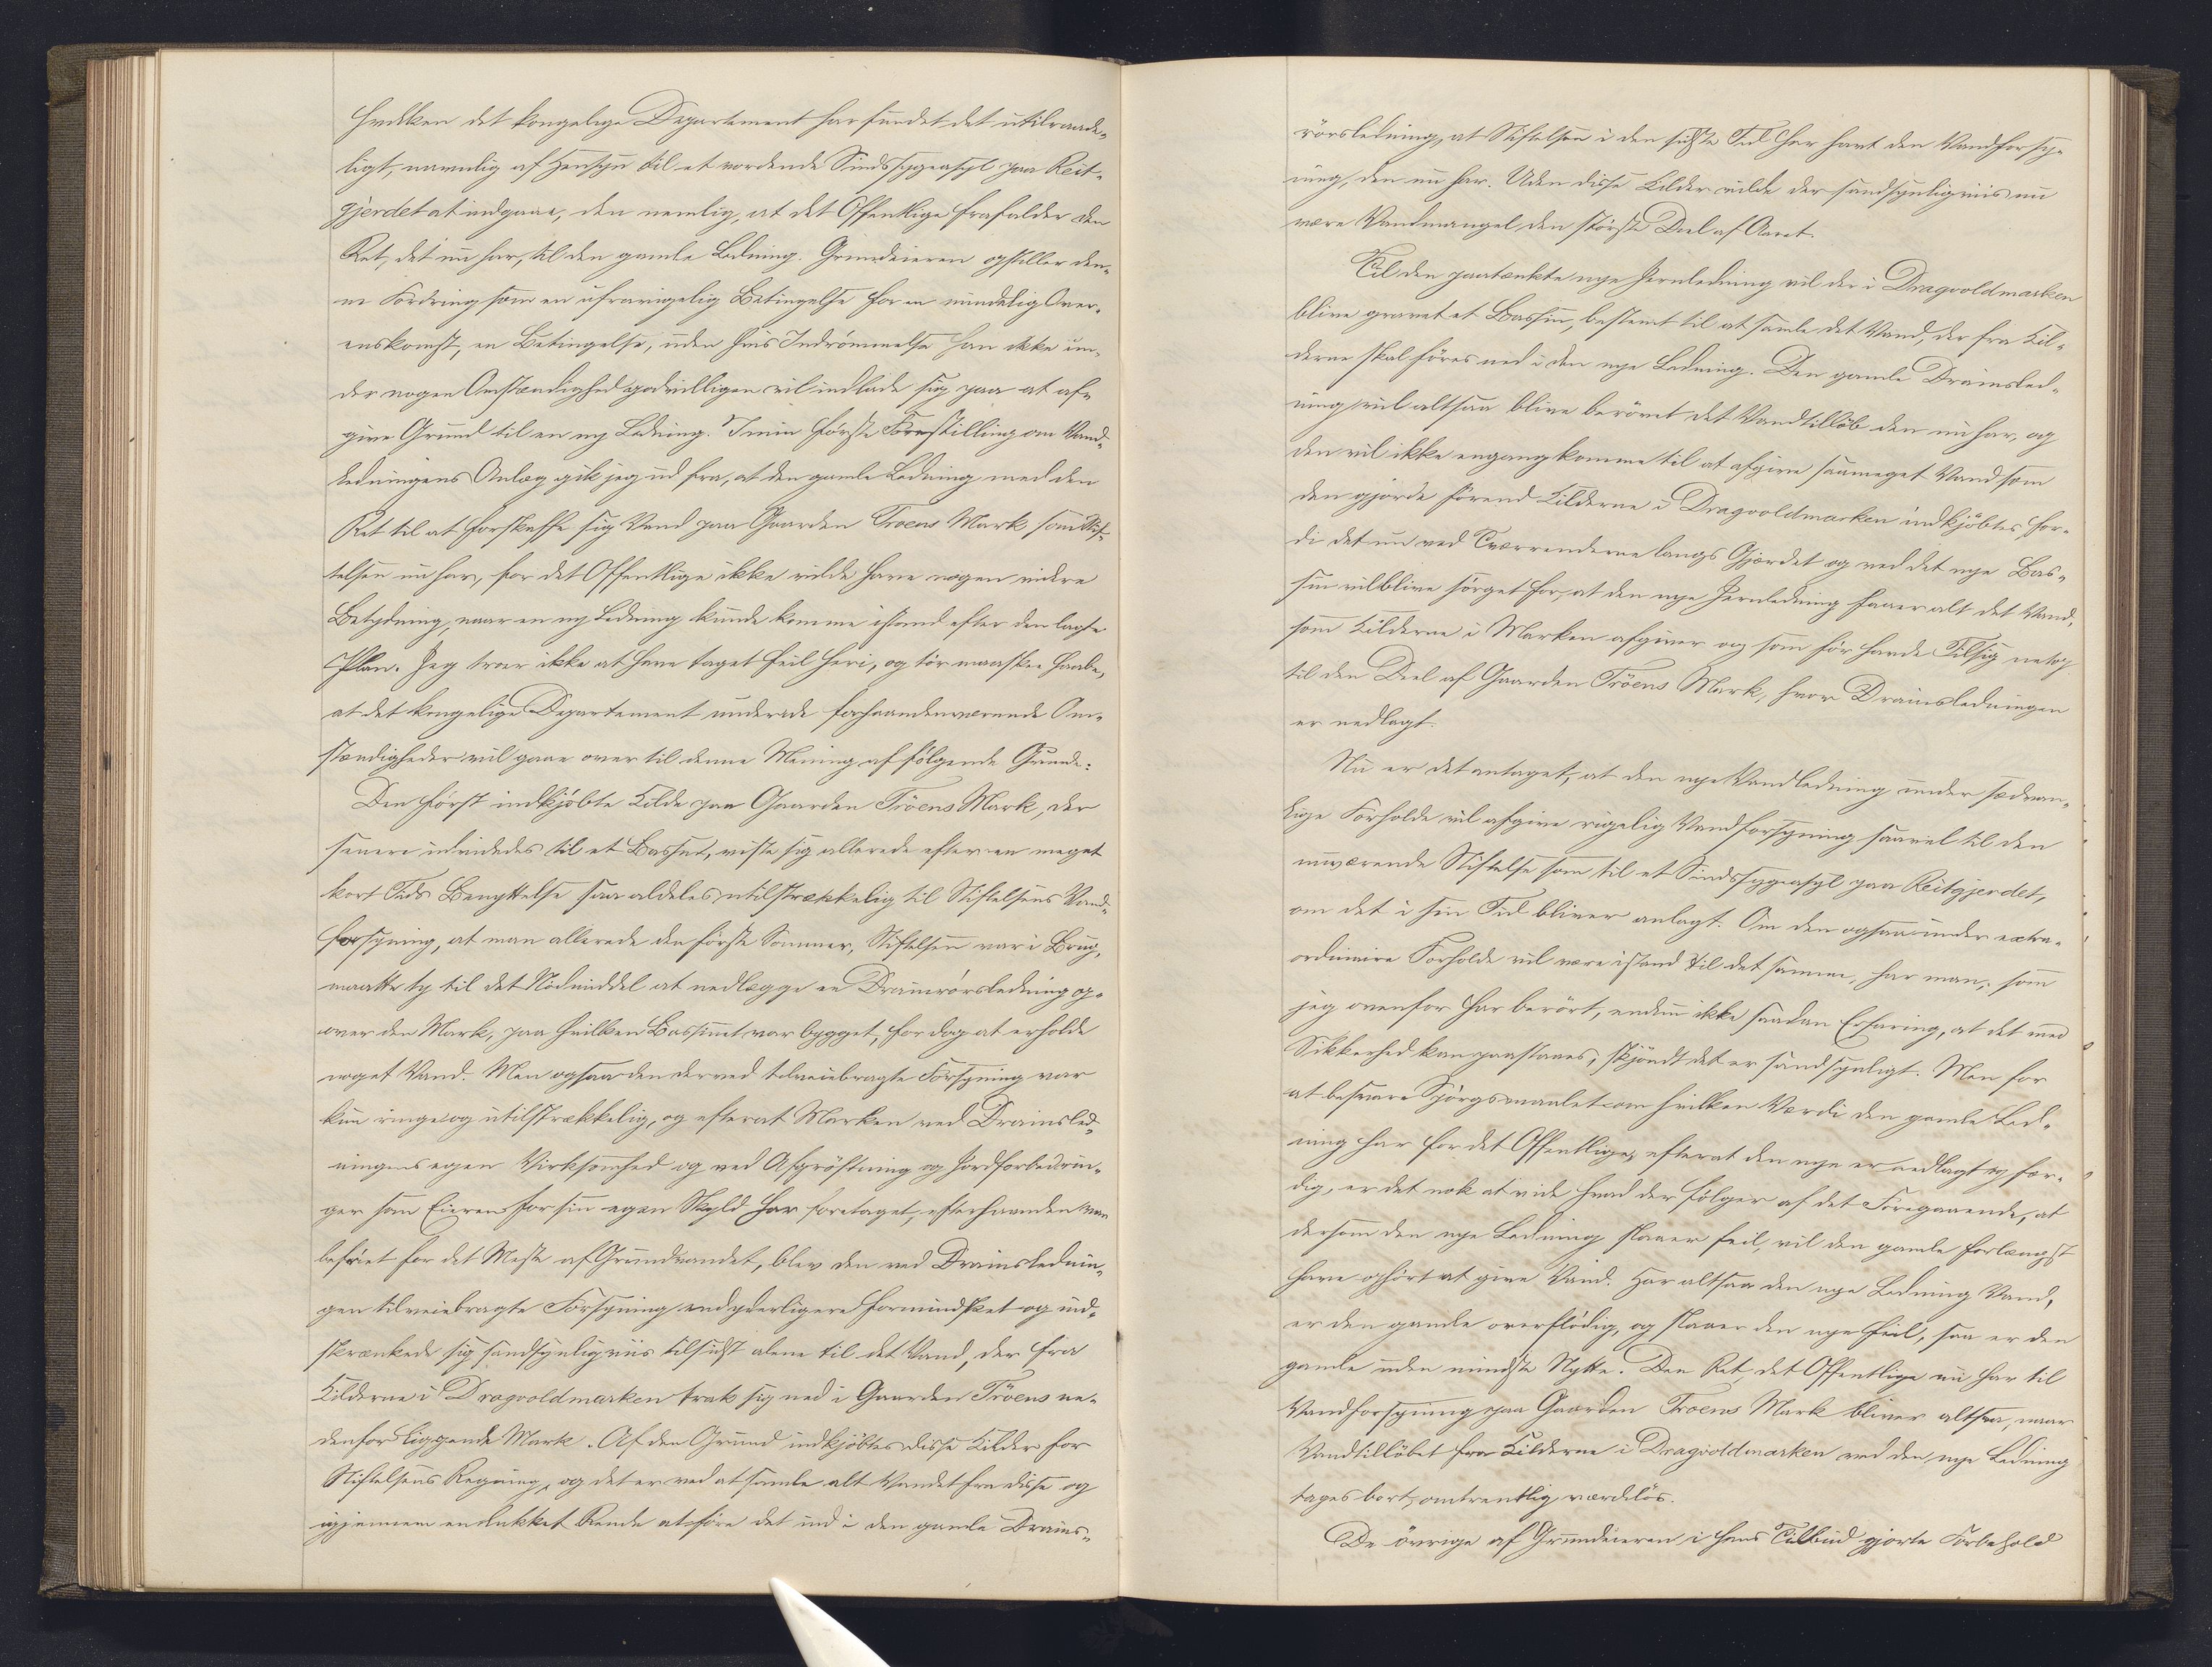 hvilken det kongelige Departement har fundet det utilraade-
ligt, navnlig af Hensyn til et vordende Sindssygeasyl paa Reit-
gjerdet at indgaae, den nemlig, at det Offentlige frafalder den
Ret, det nu har, til den gamle Ledning. Grundeieren opstiller den-
ne Fordring som en ufravigelig Betingelse for en mindelig Over-
enskomst, en Betingelse, uden hvis Indrömmelse han ikke un-
der nogen Omstændighed godvilligen vil indlade sig paa at af-
give Grund til en ny Ledning. I min förste Forestilling om Vand-
ledningens Anlæg gik jeg ud fra, at den gamle Ledning med den
Ret til at forskaffe sig Vand paa Gaarden Troens Mark som Stif-
telsen nu har, for det Offentlige ikke vilde have nogen videre
Betydning, naar en ny Ledning kunde komme istand efter den lagte
Plan. Jeg troer ikke at have taget feil heri, og tör maaskee haabe,
at det kongelige Departement under de forhaandenværende Om-
stændigheder vil gaae over til denne Mening af fölgende Grunde:
Den först indkjöbte Kilde paa Gaarden Tröens Mark, der
senere udvidedes til et Bassin, viste sig allerede efter en meget
kort Tids Benyttelse saa aldeles utilstrækkelig til Stiftelsens Vand-
forsyning, at man allerede den förste Sommer, Stiftelsen var i Brug,
maatte ty til det Nödmiddel at nedlægge en Drainrörsledning op-
over den Mark, paa hvilken Bassinet var bygget, for dog at erholde
noget Vand. Men ogsaa den derved tilveiebragte Forsyning var
kun ringe og utilstrækkelig, og efterat Marken ved Drainsled-
ningens egen Virksomhed og ved Afgröftning og Jordforbedrin-
ger som Eieren for sin egen Skyld har foretaget, efterhaanden var
befriet for det Meste af Grundvandet, blev den ved Drainslednin-
gen tilveiebragte Forsyning end yderligere formindsket og ind-
skrænkede sig sandsynligviis tilsidst alene til det Vand, der fra
Kilderne i Dragvoldmarken trak sig ned i Gaarden Tröens ne-
denfor liggende Mark. Af den Grund indkjöbtes disse Kilder for
Stiftelsens Regning, og det er ved at samle alt Vandet fra disse og
igjennem en lukket Rende at före det ind i den gamle Drains-
rörsledning, at Stiftelsen i den sidste Tid har havt den Vandforsy-
ning, den nu har. Uden disse Kilder vilde der sandsynligviis nu
være Vandmangel den störste Deel af Aaret.
Til den paatænkte nye Jernledning vil der i Dragvoldmarken
blive gravet et Bassin, bestemt til at samle det Vand, der fra Kil-
derne skal föres ned i den nye Ledning. Den gamle Drainsled-
ning vil altsaa blive berövet det Vandtillöb den nu har, og
den vil ikke engang komme til at afgive saameget Vand som
den gjorde förend Kilderne i Dragvoldmarken indkjöbtes, for-
di det nu ved Tværrenderne langs Gjærdet og ved det nye Bas-
sin vil blive sörget for, at den nye Jernledning faaer alt det Vand,
som Kilderne i Marken afgiver og som för havde Tilsig netop
til den Deel af Gaarden Tröens Mark, hvor Drainsledningen
er nedlagt.
Nu er det antaget, at den nye Vandledning under sædvan-
lige Forholde vil afgive rigelig Vandforsyning saavel til den
nuværende Stiftelse som til et Sindssygeasyl paa Reitgjerdet,
om det i sin Tid bliver anlagt. Om den ogsaa under extra-
ordinaire Forholde vil være istand til det samme, har man, som
jeg ovenfor har berört, endnu ikke saadan Erfaring, at det med
Sikkerhed kan paastaaes, skjöndt det er sandsynligt. Men for
at besvare Spörgsmaalet om hvilken Værdi den gamle Led-
ning har for det Offentlige, efterat den nye er nedlagt og fær-
dig, er det nok at vide hvad der fölger af det Foregaaende, at
dersom den nye Ledning slaaer feil, vil den gamle forlængst
have ophört at give Vand. Har altsaa den nye Ledning Vand,
er den gamle overflödig, og slaaer den nye feil, saa er den
gamle uden mindste Nytte. Den Ret, det Offentlige nu har til
Vandforsyning paa Gaarden Troens Mark bliver altsaa, naar
Vandtillöbet fra Kilderne i Dragvoldmarken ved den nye Ledning
tages bort, omtrentlig værdilös.
De övrige af Grundeieren i hans Tilbud gjorte Forbehold